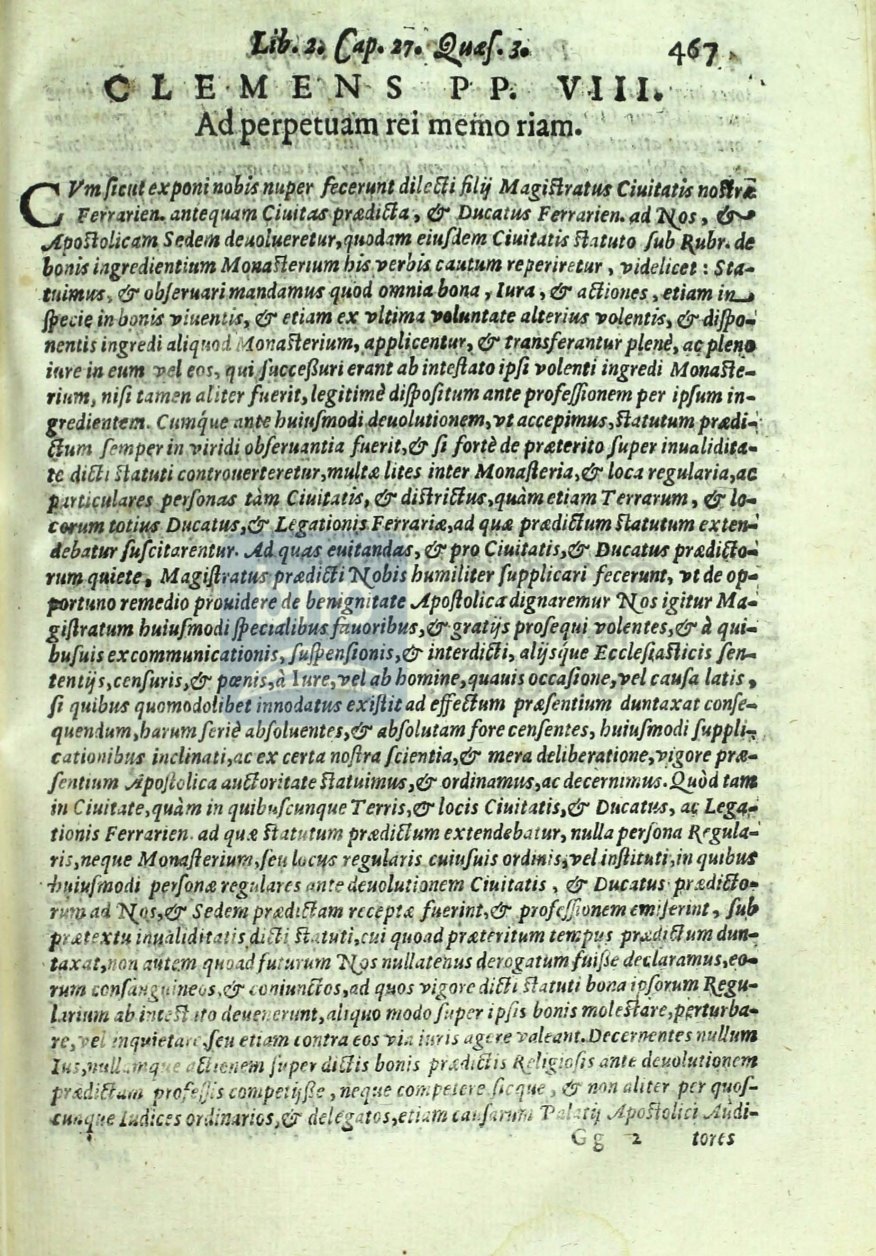 Lib. 2. Cap. 27. Quæſ. 3. 467
CLEMENS PP. VIII.
Ad perpetuam rei memoriam.
CVm ſicut exponi nobis nuper fecerunt dilecti filij Magiſtratus Ciuitatis noſtræ
Ferrarien. antequam Ciuitas prædicta, & Ducatus Ferrarien. ad Nos, &
Apoſtolicam Sedem deuolueretur, quodam eiuſdem Ciuitatis ſtatuto ſub Rubr. de
bonis ingredientium Monaſterium his verbis cautum reperiretur, videlicet: Sta-
tuimus, & obſeruari mandamus quod omnia bona, Iura, & actiones, etiam in
ſpecie in bonis viuentis, & etiam ex vltima voluntate alterius volentis, & diſpo-
nentis ingredi aliquod Monaſterium, applicentur, & transferantur plenè, ac pleno
iure in eum vel eos, qui ſucceſſuri erant ab inteſtato ipſi volenti ingredi Monaſte-
rium, niſi tamen aliter fuerit, legitimè diſpoſitum ante profeſſionem per ipſum in-
gredientem. Cumq́ue ante huiuſmodi deuolutionem, vt accepimus, ſtatutum prædi-
ctum ſemper in viridi obſeruantia fuerit, & ſi fortè de præterito ſuper inualidita-
te dicti ſtatuti controuerteretur, multæ lites inter Monaſteria, & loca regularia, ac
particulares perſonas tàm Ciuitatis, & diſtrictus, quàm etiam Terrarum, & lo-
corum totius Ducatus, & Legationis Ferrariæ, ad quæ prædictum ſtatutum exten-
debatur ſuſcitarentur. Ad quas euitandas, & pro Ciuitatis, & Ducatus prædicto-
rum quiete, Magiſtratus prædicti Nobis humiliter ſupplicari fecerunt, vt de op-
portuno remedio prouidere de benignitate Apoſtolica dignaremur Nos igitur Ma-
giſtratum huiuſmodi ſpecialibus fauoribus, & gratijs proſequi volentes, & à qui-
buſuis excommunicationis, ſuſpenſionis, & interdicti, alijsq́ue Eccleſiaſticis ſen-
tentijs, cenſuris, & pœnis, à Iure, vel ab homine, quauis occaſione, vel cauſa latis,
ſi quibus quomodolibet innodatus exiſtit ad effectum præſentium duntaxat conſe-
quendum, harum ſeriè abſoluentes, & abſolutam fore cenſentes, huiuſmodi ſuppli-
cationibus inclinati, ac ex certa noſtra ſcientia, & mera deliberatione, vigore præ-
ſentium Apoſtolica auctoritate ſtatuimus, & ordinamus, ac decernimus. Quòd tam
in Ciuitate, quàm in quibuſcunque Terris, & locis Ciuitatis, & Ducatus, ac Lega-
tionis Ferrarien. ad quæ ſtatutum prædictum extendebatur, nulla perſona Regula-
ris, neque Monaſterium, ſeu locus regularis cuiuſuis ordinis, vel inſtituti, in quibus
huiuſmodi perſonæ regulares ante deuolutionem Ciuitatis, & Ducatus prædicto-
rum ad Nos, & Sedem prædictam receptæ fuerint, & profeſſionem emiſerint, ſub
prætextu inualiditatis dicti ſtatuti, cui quoad præteritum tempus prædictum dun-
taxat, non autem quoad futurum Nos nullatenus derogatum fuiſſe declaramus, eo-
rum conſanguineos, & coniunctos, ad quos vigore dicti ſtatuti bona ipſorum Regu-
larium ab inteſtato deuenerunt, aliquo modo ſuper ipſis bonis moleſtare, perturba-
re, vel inquietare, ſeu etiam contra eos via iuris agere valeant. Decernentes nullum
Ius, nullamque actionem ſuper dictis bonis prædictis Religioſis ante deuolutionem
prædictam profeſſis competijſſe, neque competere ſicque, & non aliter per quoſ-
cunque Iudices ordinarios, & delegatos, etiam cauſarum Palatij Apoſtolici Audi-
Gg 2 tores